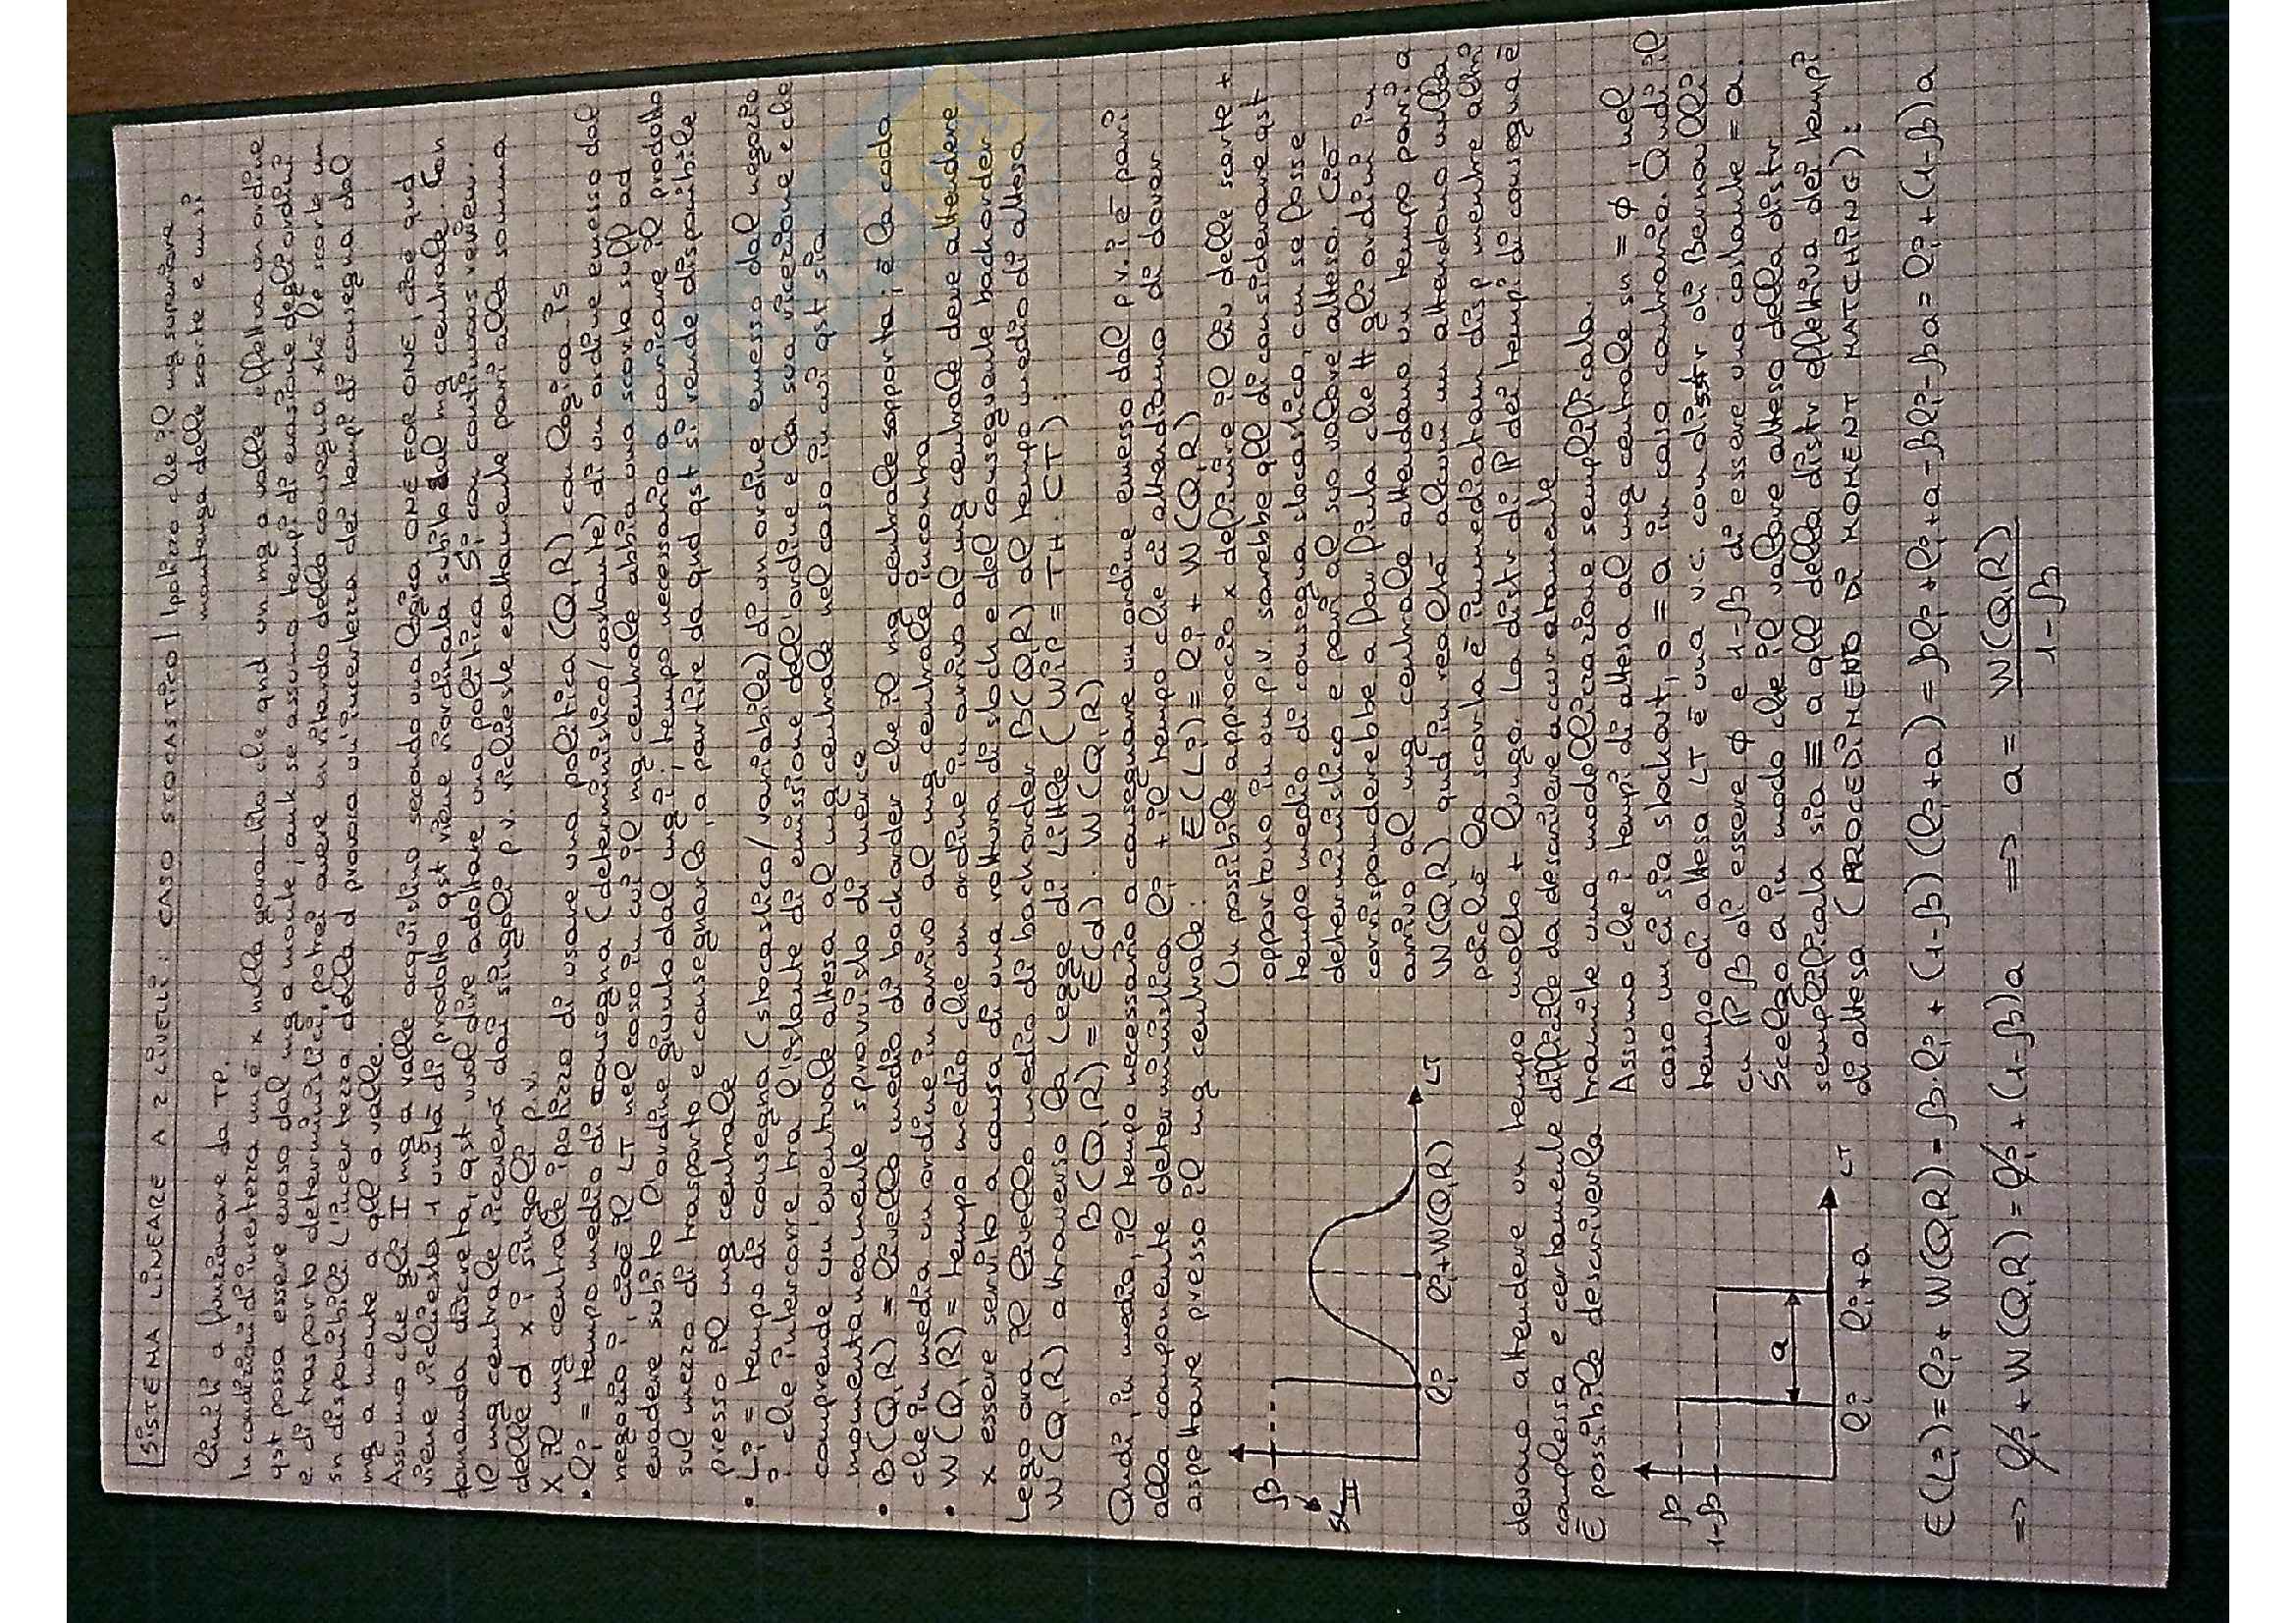 SISTEMA LINEARE A 2 LIVELLI: CASO STOCASTICO | Ipotizzo che il mg superiore
mantenga delle scorte e mi si
limiti a funzionare da TP.
In condizioni di incertezza nn è x nulla garantito che qnd un mg a valle effettua un ordine
qst possa essere evaso dal mg a monte, ank se assumo tempi di evasione degli ordini
e di trasporto deterministici, potrei avere un ritardo della consegna xké le scorte nn
sn disponibili. L'incertezza della d provoca un'incertezza dei tempi di consegna dal
mg a monte a qll a valle.
Assumo che gli I mg a valle acquistino secondo una logica ONE FOR ONE, cioè qnd
viene richiesta 1 unità di prodotto qst viene riordinata subito dal mg centrale. Con
domanda discreta, qst vuol dire adottare una politica Si con continuous review.
Il mg centrale riceverà dai singoli p.v. richieste esattamente pari alla somma
delle d x i singoli p.v.
X il mg centrale ipotizzo di usare una politica (Q,R) con logica is
• li = tempo medio di consegna (deterministico/costante) di un ordine emesso dal
negozio i, cioè il LT nel caso in cui il mg centrale abbia una scorta suff ad
evadere subito l'ordine giunto dal mg i; tempo necessario a caricare il prodotto
sul mezzo di trasporto e consegnarlo, a partire da qnd qst si rende disponibile
presso il mg centrale
• Li = tempo di consegna (stocastico/variabile) di un ordine emesso dal negozio
i che intercorre tra l'istante di emissione dell'ordine e la sua ricezione e che
comprende un'eventuale attesa al mg centrale nel caso in cui qst sia
momentaneamente sprovvisto di merce
• B(Q,R) = livello medio di backorder che il mg centrale sopporta; è la coda
che in media un ordine in arrivo al mg centrale incontra
• W(Q,R) = tempo medio che un ordine in arrivo al mg centrale deve attendere
x essere servito a causa di una rottura di stock e del conseguente backorder
Lego ora il livello medio di backorder B(Q,R) al tempo medio di attesa
W(Q,R) attraverso la Legge di Little (WiP = TH · CT):
B(Q,R) = E(d) · W(Q,R)
Quindi, in media, il tempo necessario a consegnare un ordine emesso dal p.v. i è pari
alla componente deterministica li + il tempo che ci attendiamo di dover
aspettare presso il mg centrale: E(Li) = li + W(Q,R)
Un possibile approccio x definire il liv delle scorte +
opportuno in un p.v. sarebbe qll di considerare qst
tempo medio di consegna stocastico, cm se fosse
deterministico e pari al suo valore atteso. Ciò
corrisponderebbe a far finta che tt gli ordini in
arrivo al mg centrale attendano un tempo pari a
W(Q,R) qnd in realtà alcuni nn attendono nulla
poiché la scorta è immediatam disp mentre altri
devono attendere un tempo molto + lungo. La distr di P dei tempi di consegna è
complessa e certamente difficile da descrivere accuratamente
È possibile descriverla tramite una modellizzazione semplificata.
Assumo che i tempi di attesa al mg centrale sn = ϕ nel
caso nn ci sia stockout, o = a in caso contrario. Qndi il
tempo di attesa LT è una v.c. con distr di Bernoulli
cn P β di essere ϕ e 1-β di essere una costante = a.
Scelgo a in modo che il valore atteso della distr
semplificata sia ≡ a qll della distr effettiva dei tempi
di attesa (PROCEDIMENTO DI MOMENT MATCHING):
β
li
li+W(Q,R)
LT
β
1-β
a
li
li+a
LT
E(Li) = li + W(Q,R) = β·li + (1-β)(li+a) = βli + li + a - βli - βa = li + (1-β)a
=> li + W(Q,R) = li + (1-β)a => a = W(Q,R) / 1-β